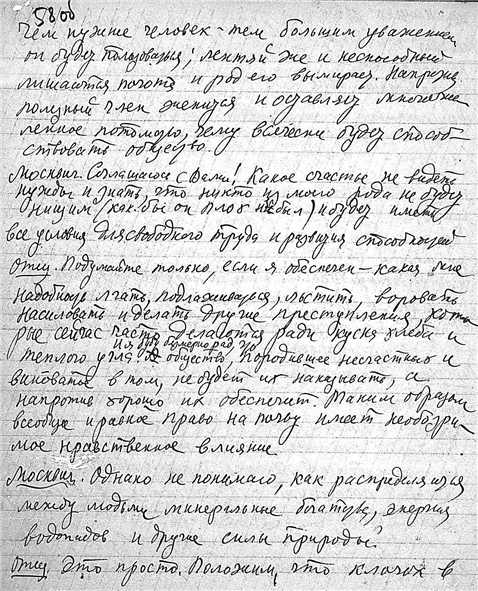 58об
Чем нужнее человек – тем большим уважением
он будет пользоваться; лентяй же и неспособный
лишаются почота и род его вымирает. Напротив
полезный член женится и оставляет многочис
ленное потомство, чему всячески будет способ-
ствовать общество.
Москвич. Соглашаюсь с Вами! Какое счастье не видеть
нужды и знать, что никто из моего рода не будет
нищим (как бы он плох ни был) и будет иметь
все условия для свободного труда и развития способностей
Отец. Подумайте только, если я обеспечен – какая мне
надобность лгать, подлаживаться, льстить, воровать
насиловать и делать другие преступления, кото
рые сейчас часто делаются ради куска хлеба и
теплого угла общество, породившее несчастных и
виноватое в том, не будет их наказывать, а
напротив хорошо их обеспечит. Таким образом
всеобщее и равное право на почву имеет необозри-
мое нравственное влияние
Москвич. Однако не понимаю, как распределяются
между людьми минеральные богатства, энергия
водопадов и другие силы природы?
Отец. Это просто. Положим, что клочок в